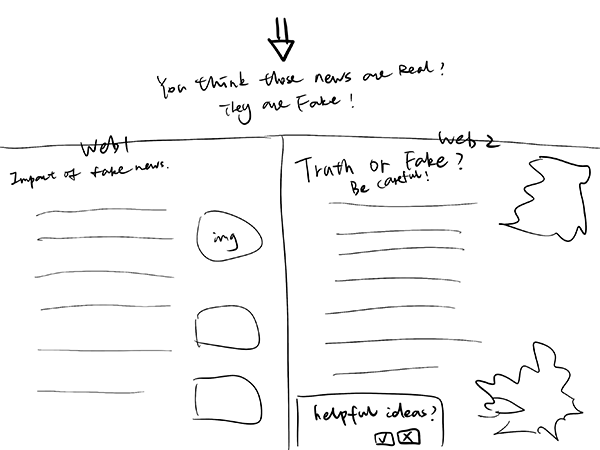 You think those news are Real?
They are Fake!
Web1
Impact of fake news.
img
Web 2
Truth or Fake?
Be careful!
helpful ideas?